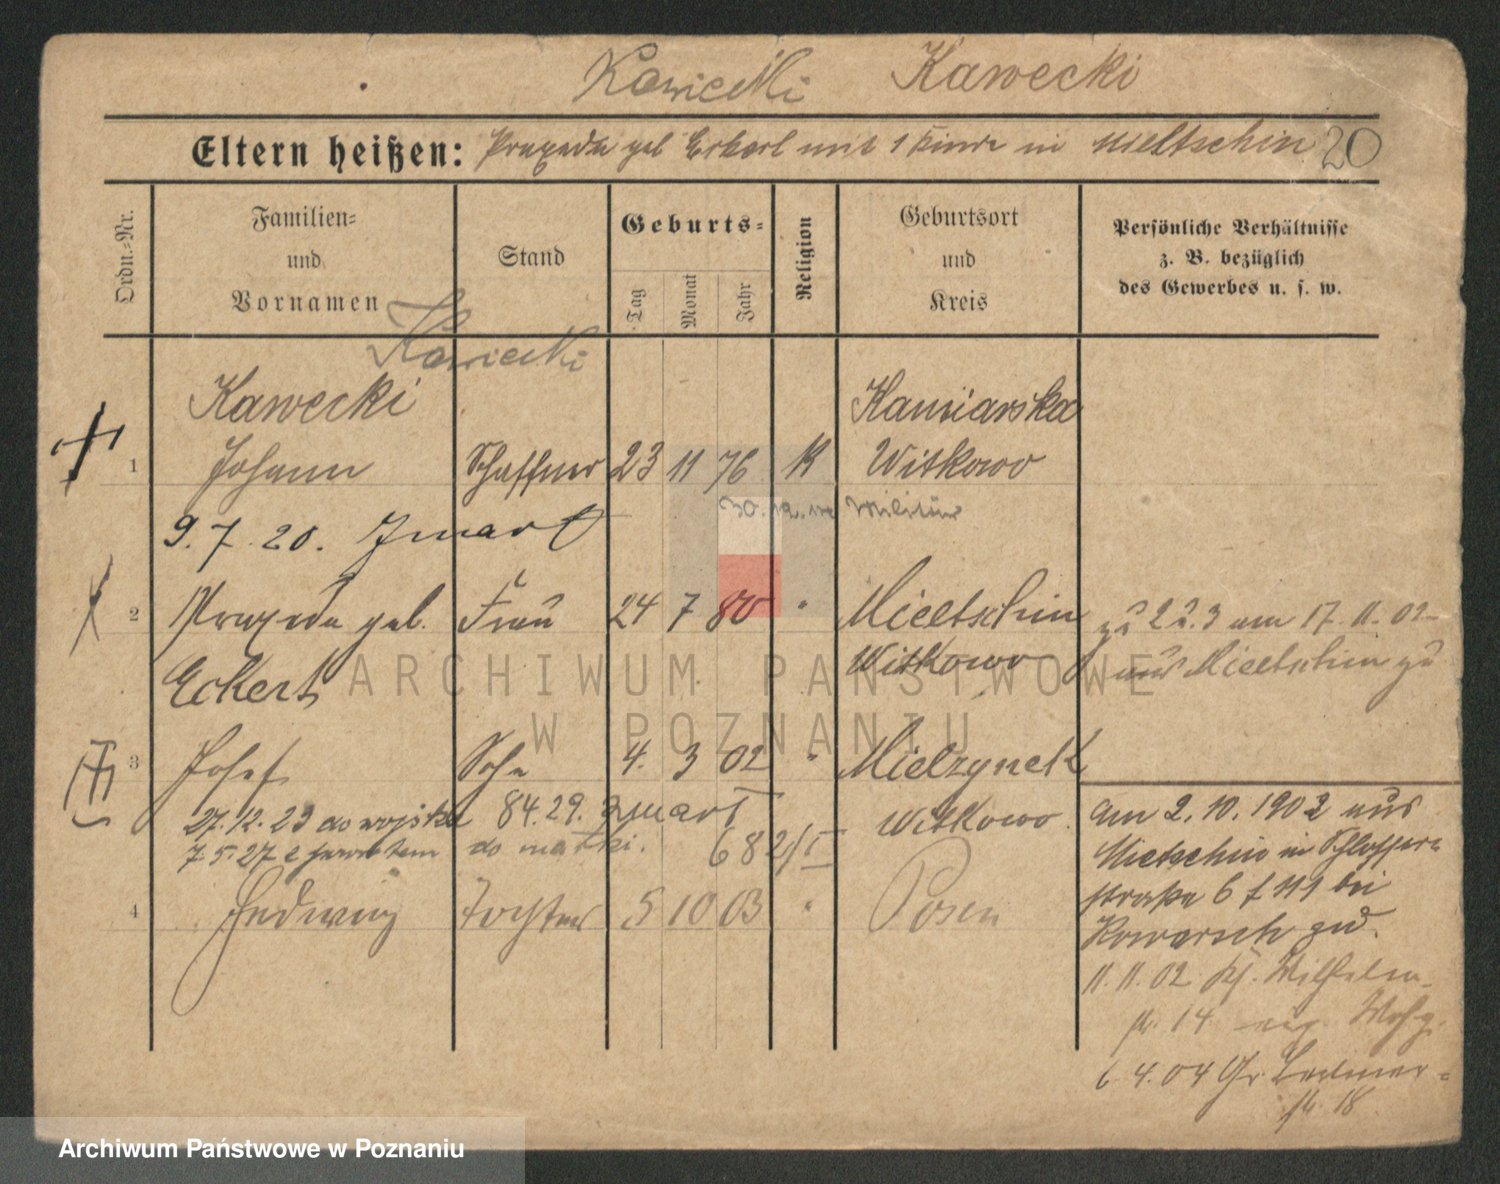 Kawiecki Kawecki
Eltern heißen: Praxeda geb Eckert mit 1 Kinde in Mieltschin 20
Ordn.=Nr.
Familien=
und
Vornamen
Stand
Geburts=
Tag Monat Jahr
Religion
Geburtsort
und
Kreis
Persönliche Verhältnisse
z. B. bezüglich
des Gewerbes u. s. w.
Kawiecki
Kawecki
Johann
1
Schaffner 23 11 76 K
Kamiarska
Witkowo
30.12. Militär
9.7.20. Zmarł
2
Praxeda geb.
Eckert
Frau 24 7 80 "
Mieltschin
Witkowo
zu 2 u. 3 am 17.11.02
aus Mieltschin zu
3
Josef Sohn 4. 3 02 "
Mielzynek
Witkowo
27.12.23 do wojska 84.29. zmarł
7.5.27 z powrotem do matki. 682/I
4
Hedwig Tochter 5 10 03 "
Posen
am 2.10.1902 aus
Mieltschin in Schlosser=
straße 6 f 111 bei
Kowarsch zu.
11.11.02 Kj. Wilhelm=
str. 14 eig. Wohg.
6.4.04 Gr.
str. 18
ARCHIWUM PAŃSTWOWE
W POZNANIU
Archiwum Państwowe w Poznaniu